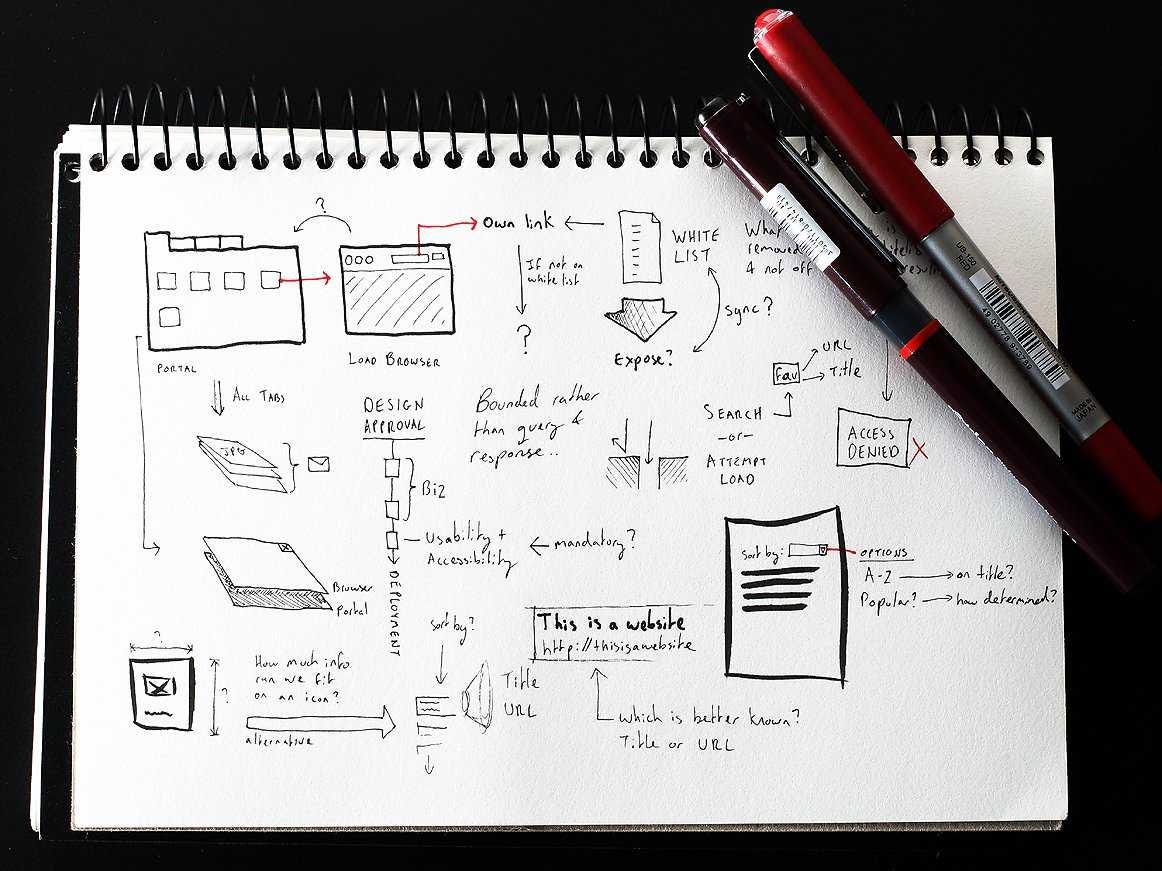 ?
Own link
WHITE
LIST
What
removed
& not off
If not on
white list
?
sync?
Expose?
PORTAL
LOAD BROWSER
ALL TABS
JPG
DESIGN
APPROVAL
Biz
Usability +
Accessibility
mandatory?
DEPLOYMENT
Bounded rather
than query &
response..
Fav
URL
Title
SEARCH
-or-
ATTEMPT
LOAD
ACCESS
DENIED
Browser
Portal
sort by:
OPTIONS
A-Z
on title?
Popular?
how determined?
?
?
How much info
can we fit
on an icon?
alternative
sort by?
Title
URL
This is a website
http://thisisawebsite
Which is better known?
Title or URL
UB-150
RED
MADE IN
JAPAN